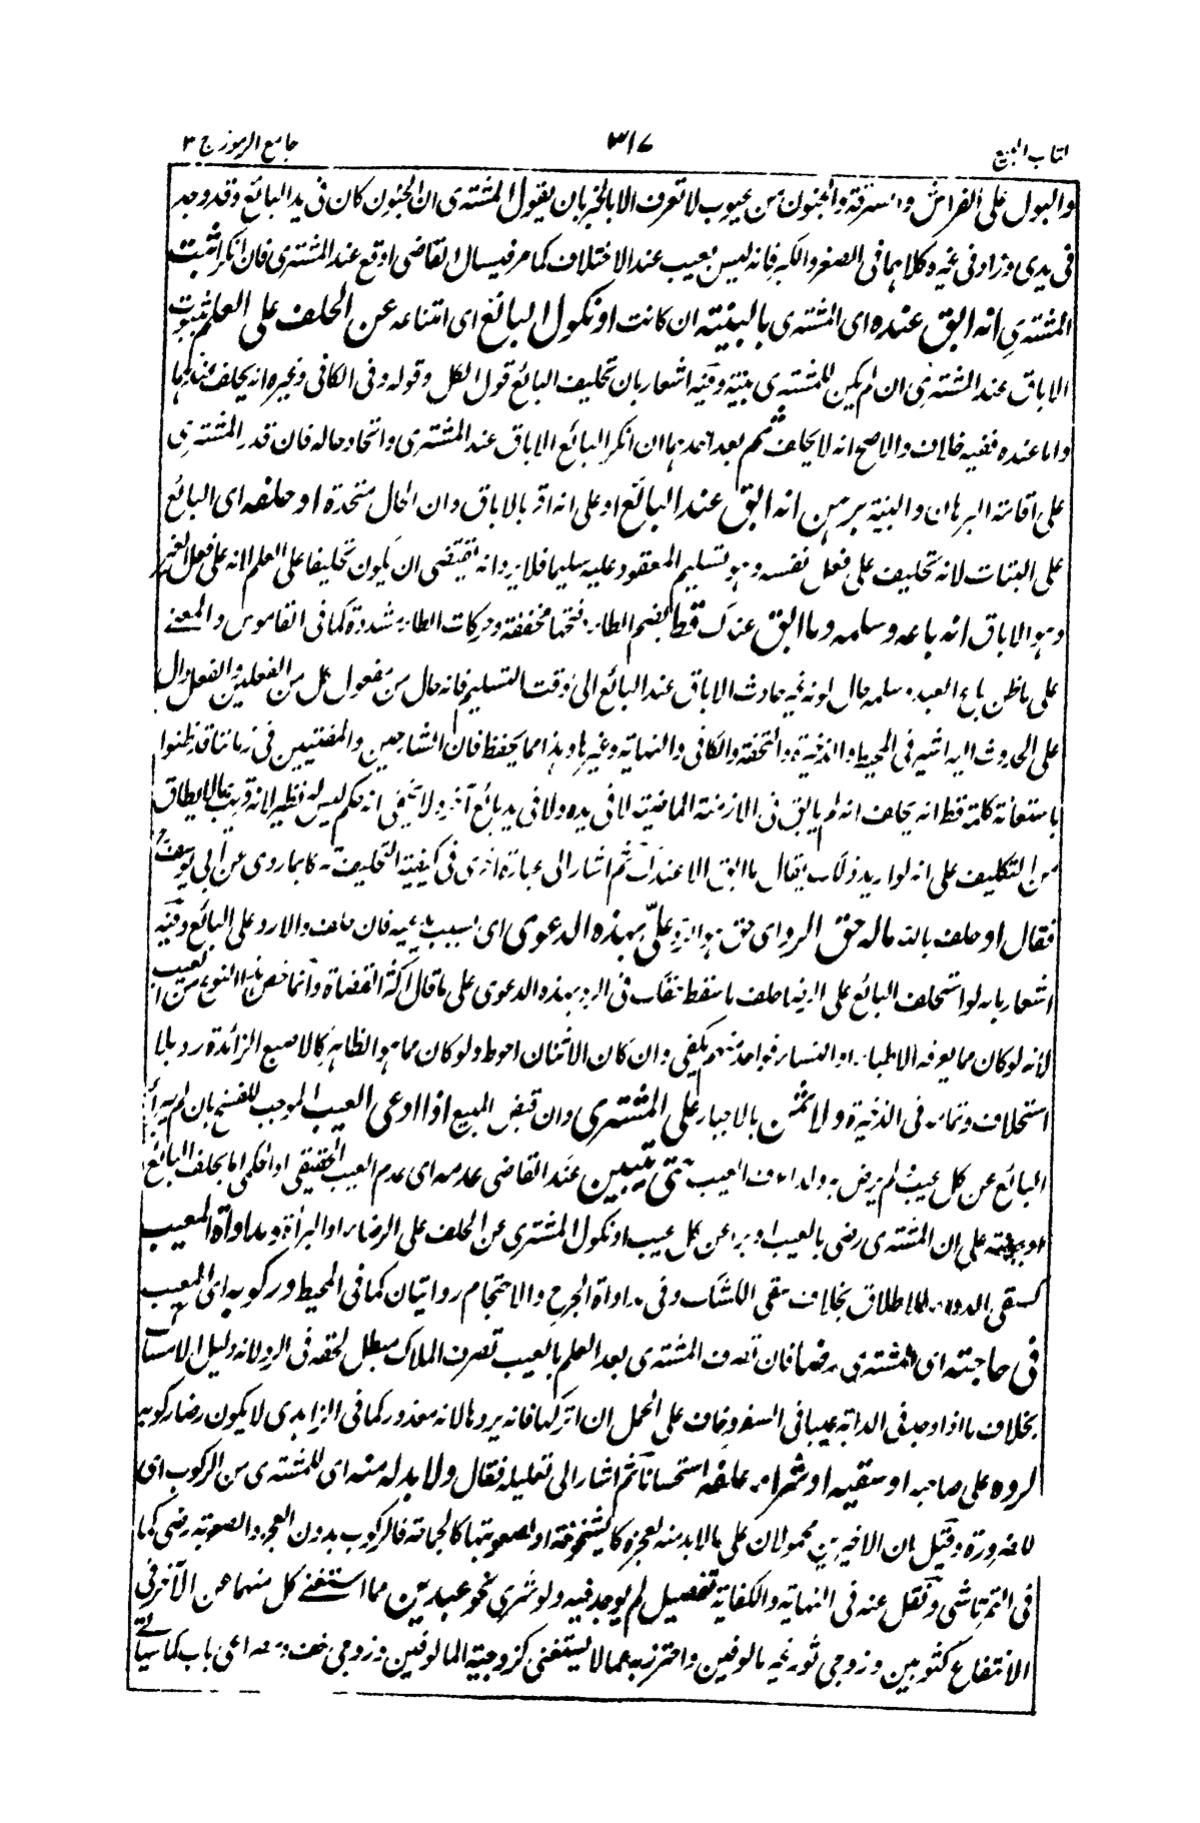 كتاب البيع ٣١٧ جامع الرموز ج ٣
والبول على الفراش والسرقة والجنون من عيوب لا تعرف الا بالخبر بان يقول المشترى ان الجنون كان فى يد البائع وقد وجد
فى يدى وزاد فى غيره كلاهما فى الصغر والكبر فانه ليس بعيب عند الاختلاف كما مر فيسال القاضى اوقع عند المشترى فان انكر اثبت
المشترى انه ابق عنده اى المشترى بالبينة ان كانت او نكول البائع اى امتناعه عن الحلف على العلم بثبوت
الاباق عند المشترى ان لم يكن للمشترى بينة وفيه اشعار بان تحليف البائع قول الكل وقوله وفى الكافى وغيره انه يحلف عندهما
واما عنده ففيه خلاف والاصح انه لا يحلف ثم بعد احدهما ان انكر البائع الاباق عند المشترى واتحاد حاله فان قدر المشترى
على اقامة البرهان والبينة برهن انه ابق عند البائع او على انه اقر بالاباق وان الحال متحدة او حلفه اى البائع
على البتات لانه تحليف على فعل نفسه وهو تسليم المعقود عليه سليما فلا يرد انه يقتضى ان يكون تحليفا على العلم لانه على فعل الغير
وهو الاباق انه باعه وسلمه وما ابق عندك قط بضم الطاء وفتحها مخففة وحركات الطاء مشددة كما فى القاموس والمعنى
على ما ظن باع العبد وسلمه حال كونه غير حادث الاباق عند البائع الى وقت التسليم فانه حال من مفعول كل من الفعلين والفعل دال
على الحدوث اليه اشير فى المحيط والذخيرة والتحفة والكافى والنهاية وغيرها وهذا مما يحفظ فان الشارحين والمفتيين فى زماننا قد ظنوا
باستعانة كلمة قط انه يحلف انه لم يابق فى الازمنة الماضية لا فى يده ولا فى يد بائع آخر ولا يخفى انه حكم ليس له نظير لانه قريب مما لا يطاق
من التكليف على انه لو اريد ذلك يقال ما ابق الا عندك ثم اشار الى عبارة اخرى فى كيفية التحليف كما روى عن ابى يوسف
فقال او حلف بالله ماله حق الرد اى حق هو الرد علىّ بهذه الدعوى اى بسبب عيبه فان حلف والا رد على البائع وفيه
اشعار بانه لو استحلف البائع على الرد بهذه الدعوى على ما قال اكثر القضاة وانما خص هذا النوع من العيب
لانه لو كان مما يعرفه الاطباء او النساء فواحد منهم يكفى وان كان الاثنان احوط ولو كان مما هو الظاهر كالاصبع الزائدة رد بلا
استحلاف وتمامه فى الذخيرة ولا ثمن بالاجبار على المشترى وان قبض المبيع اذا ادعى العيب الموجب للفسخ بان لم يبرأ
البائع عن كل عيب لم يرض به ولد العيب حتى يتبين عند القاضى عدمه اى عدم العيب الحقيقى او الحكمى اما بحلف البائع
او ببينته على ان المشترى رضى بالعيب او برا عن كل عيب او نكول المشترى عن الحلف على الرضاء او البرأة ومداواة المعيب
كسقى الدواء للاطلاق بخلاف سقى وفى مداواة الجرح والاحتجام روايتان كما فى المحيط وركوبه اى المعيب
فى حاجته اى المشترى رضا فان تصرف المشترى بعد العلم بالعيب تصرف الملاك مبطل لحقه فى الرد لانه دليل الامساك
بخلاف ما اذا وجد فى الدابة عيبا فى السفر وخاف على الحمل ان تركها فانه يردها لانه معذور كما فى الزاهدى لا يكون رضا ركوبه
لرده على صاحبه او سقيه او شراء علفه استحسانا ثم اشار الى تعليله فقال ولا بد له منه اى للمشترى من الركوب اى
لا ضرورة وقيل ان الاخيرين محمولان على ما لا بد منه لعجزه كالشيخوخة او لصعوبتها كالجماحة فالركوب بدون العجز والصعوبة رضى كما
فى التمرتاشى ونقل عنه فى النهاية والكفاية تفصيل لم يوجد فيه ولو شرى نحو عبدين مما استغنى كل منهما عن الآخر فى
الانتفاع كثوبين وزوجى ثور غير مالوفين واحترز به عما لا يستغنى كزوجية المالوفين وزوجى خف ومصراعى باب كما سياتى